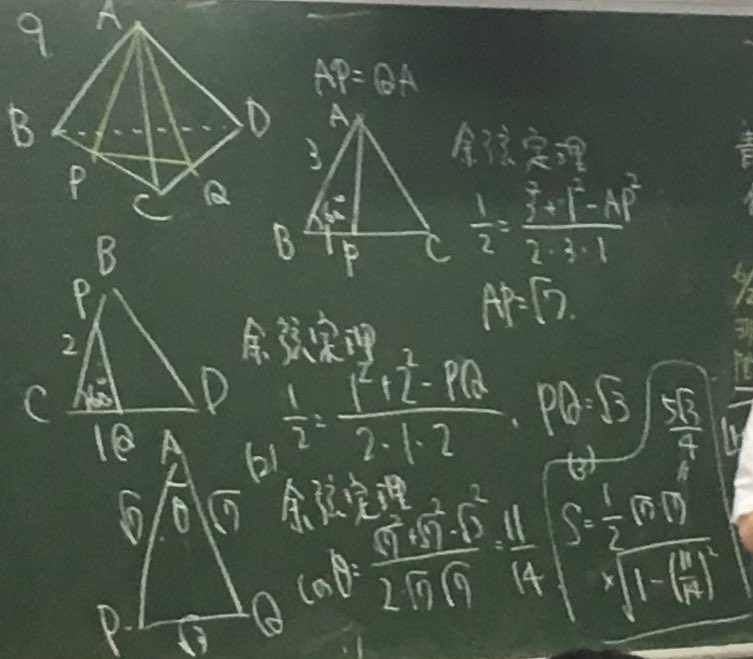 9
A
B
D
P
C
Q
AP=QA
A
3
60°
B
1
P
C
余弦定理
1/2 = (3²+1²-AP²)/(2·3·1)
AP=√7.
B
P
2
60°
C
D
1Q
余弦定理
1/2 = (1²+2²-PQ)/(2·1·2) .
PQ=√3
(2)
A
√7
θ
√7
P
Q
√3
余弦定理
cosθ = (√7²+√7²-√3²)/(2√7√7) = 11/14
(3)
S = 1/2 √7·√7
×√(1-(11/14)²)
5√3/4